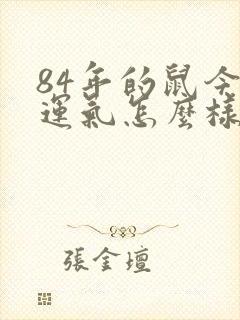 84年的鼠今
運氣怎麼樣
張金壇